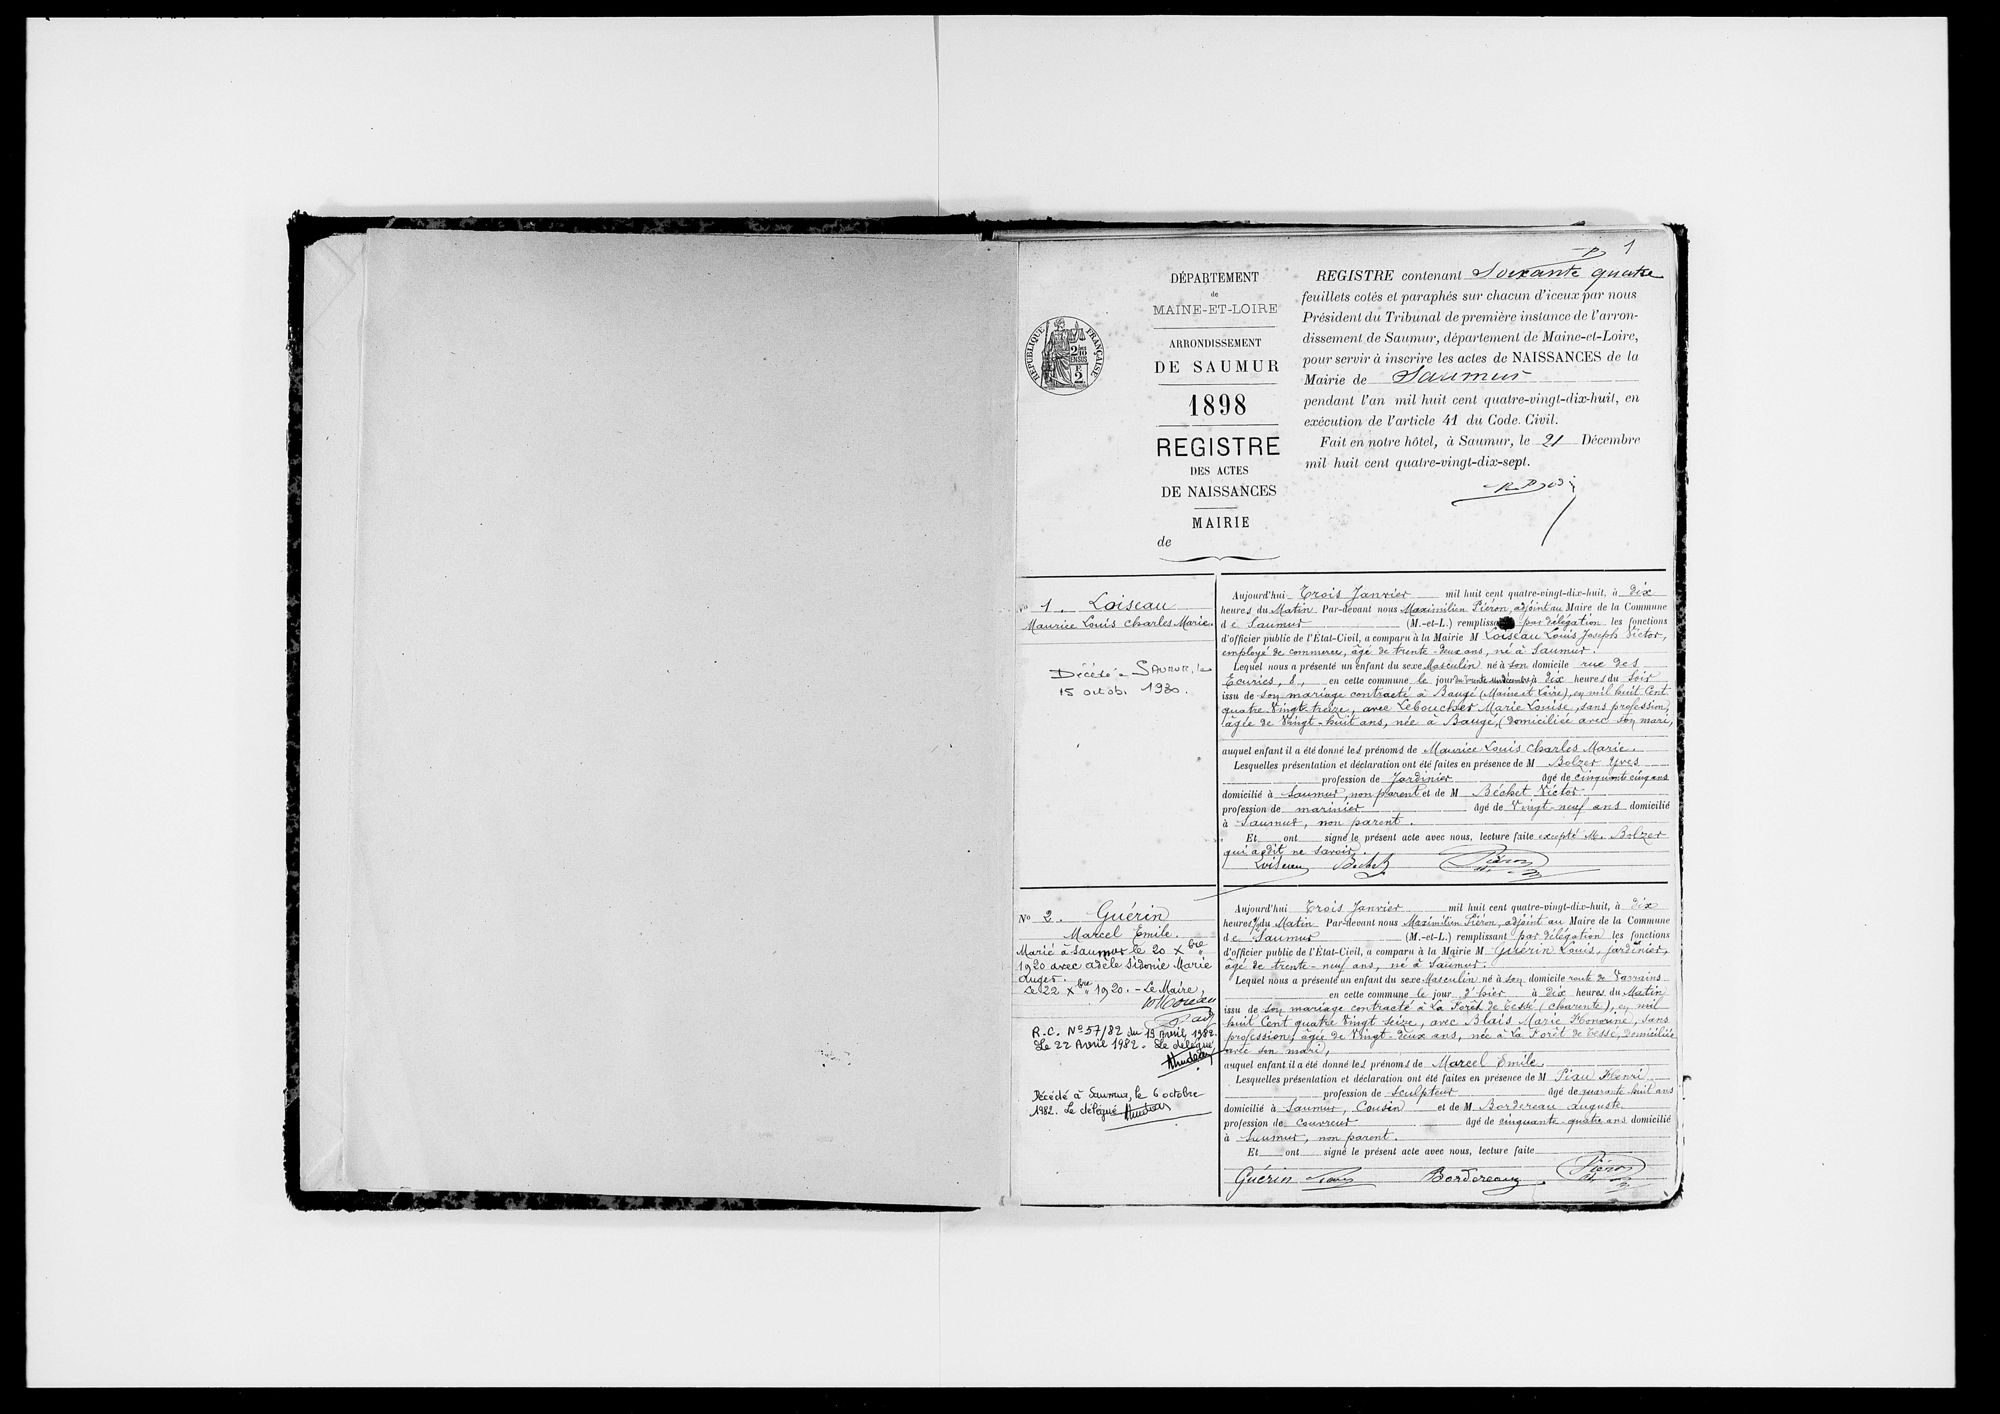 1
DÉPARTEMENT
de
MAINE-ET-LOIRE
ARRONDISSEMENT
DE SAUMUR
1898
REGISTRE
DES ACTES
DE NAISSANCES
MAIRIE
de
RÉPUBLIQUE FRANÇAISE
REGISTRE contenant Soixante quatre
feuillets cotés et paraphés sur chacun d'iceux par nous
Président du Tribunal de première instance de l'arron-
dissement de Saumur, département de Maine-et-Loire,
pour servir à inscrire les actes de NAISSANCES de la
Mairie de Saumur
pendant l'an mil huit cent quatre-vingt-dix-huit, en
exécution de l'article 41 du Code Civil.
Fait en notre hôtel, à Saumur, le 21 Décembre
mil huit cent quatre-vingt-dix-sept.
No 1. Loiseau
Maurice Louis Charles Marie.
Décédé à SAUMUR, le
15 octob. 1980.
Aujourd'hui Trois Janvier mil huit cent quatre-vingt-dix-huit, à Dix
heures du Matin Par-devant nous Maximilien Piéron, adjoint au Maire de la Commune
de Saumur (M.-et-L.) remplissant par délégation les fonctions
d'officier public de l'État-Civil, a comparu à la Mairie M Loiseau Louis Joseph Victor,
employé de commerce, âgé de trente-deux ans, né à Saumur.
Lequel nous a présenté un enfant du sexe Masculin né à son domicile rue des
Ecuries, 8, en cette commune le jour du trente un décembre à Dix heures du Soir
issu de son mariage contracté à Baugé (Maine et Loire), en mil huit Cent
quatre Vingt-treize, avec Leboucher Marie Louise, sans profession,
âgée de Vingt-huit ans, née à Baugé, (domiciliée avec son mari,
auquel enfant il a été donné les prénoms de Maurice Louis Charles Marie.
Lesquelles présentation et déclaration ont été faites en présence de M Bolzer Yves
profession de Jardinier âgé de cinquante cinq ans
domicilié à Saumur, non parent et de M Béchet Victor
profession de marinier âgé de Vingt-neuf ans domicilié
à Saumur, non parent.
Et ont signé le présent acte avec nous, lecture faite excepté M. Bolzer
qui a dit ne savoir.
Loiseau Béchet Piéron
No 2. Guérin
Marcel Emile.
Marié à Saumur le 20 Xbre
1920 avec Adèle Sidonie Marie
Auger.
Le 22 Xbre 1920. - Le Maire,
R.C. No 57/82 du 19 Avril 1982.
Le 22 Avril 1982. Le délégué,
Décédé à Saumur, le 6 octobre
1982. Le délégué
Aujourd'hui Trois Janvier mil huit cent quatre-vingt-dix-huit, à Dix
heures ½ du Matin Par-devant nous Maximilien Piéron, adjoint au Maire de la Commune
de Saumur (M.-et-L.) remplissant par délégation les fonctions
d'officier public de l'État-Civil, a comparu à la Mairie M Guérin Louis, jardinier,
âgé de trente-neuf ans, né à Saumur.
Lequel nous a présenté un enfant du sexe Masculin né à son domicile route de Varrains
en cette commune le jour d'hier à Dix heures du Matin
issu de son mariage contracté à La Forêt de Tessé (Charente), en mil
huit Cent quatre Vingt seize, avec Blais Marie Honorine, sans
profession, âgée de Vingt-deux ans, née à La Forêt de Tessé, Domiciliée
avec son mari,
auquel enfant il a été donné les prénoms de Marcel Emile.
Lesquelles présentation et déclaration ont été faites en présence de M Piau Henri
profession de Sculpteur âgé de quarante-huit ans
domicilié à Saumur, Cousin et de M Bordereau Auguste
profession de couvreur âgé de cinquante-quatre ans domicilié
à Saumur, non parent.
Et ont signé le présent acte avec nous, lecture faite
Guérin Piau Bordereau Piéron